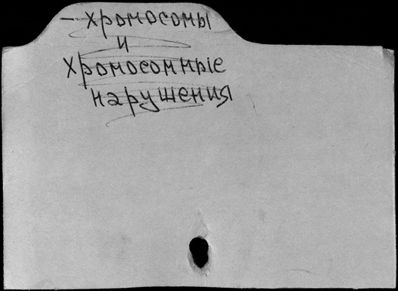 - хромосомы
и
хромосомные
нарушения